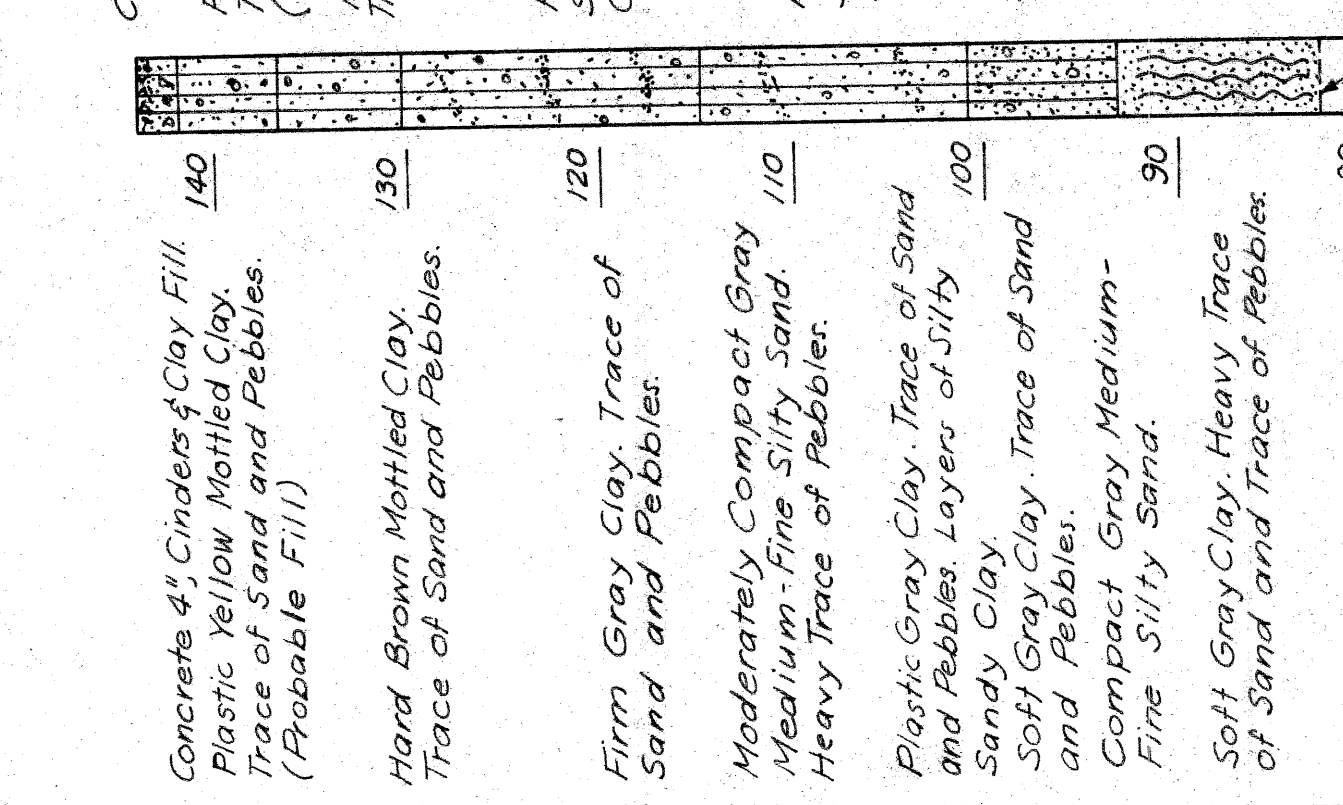 Concrete 4", Cinders & Clay Fill.
Plastic Yellow Mottled Clay.
Trace of Sand and Pebbles.
(Probable Fill)
Hard Brown Mottled Clay.
Trace of Sand and Pebbles.
Firm Gray Clay. Trace of
Sand and Pebbles.
Moderately Compact Gray
Medium-Fine Silty Sand.
Heavy Trace of Pebbles.
Plastic Gray Clay. Trace of Sand
and Pebbles. Layers of Silty
Sandy Clay.
Soft Gray Clay. Trace of Sand
and Pebbles.
Compact Gray Medium-
Fine Silty Sand.
Soft Gray Clay. Heavy Trace
of Sand and Trace of Pebbles.
140
130
120
110
100
90